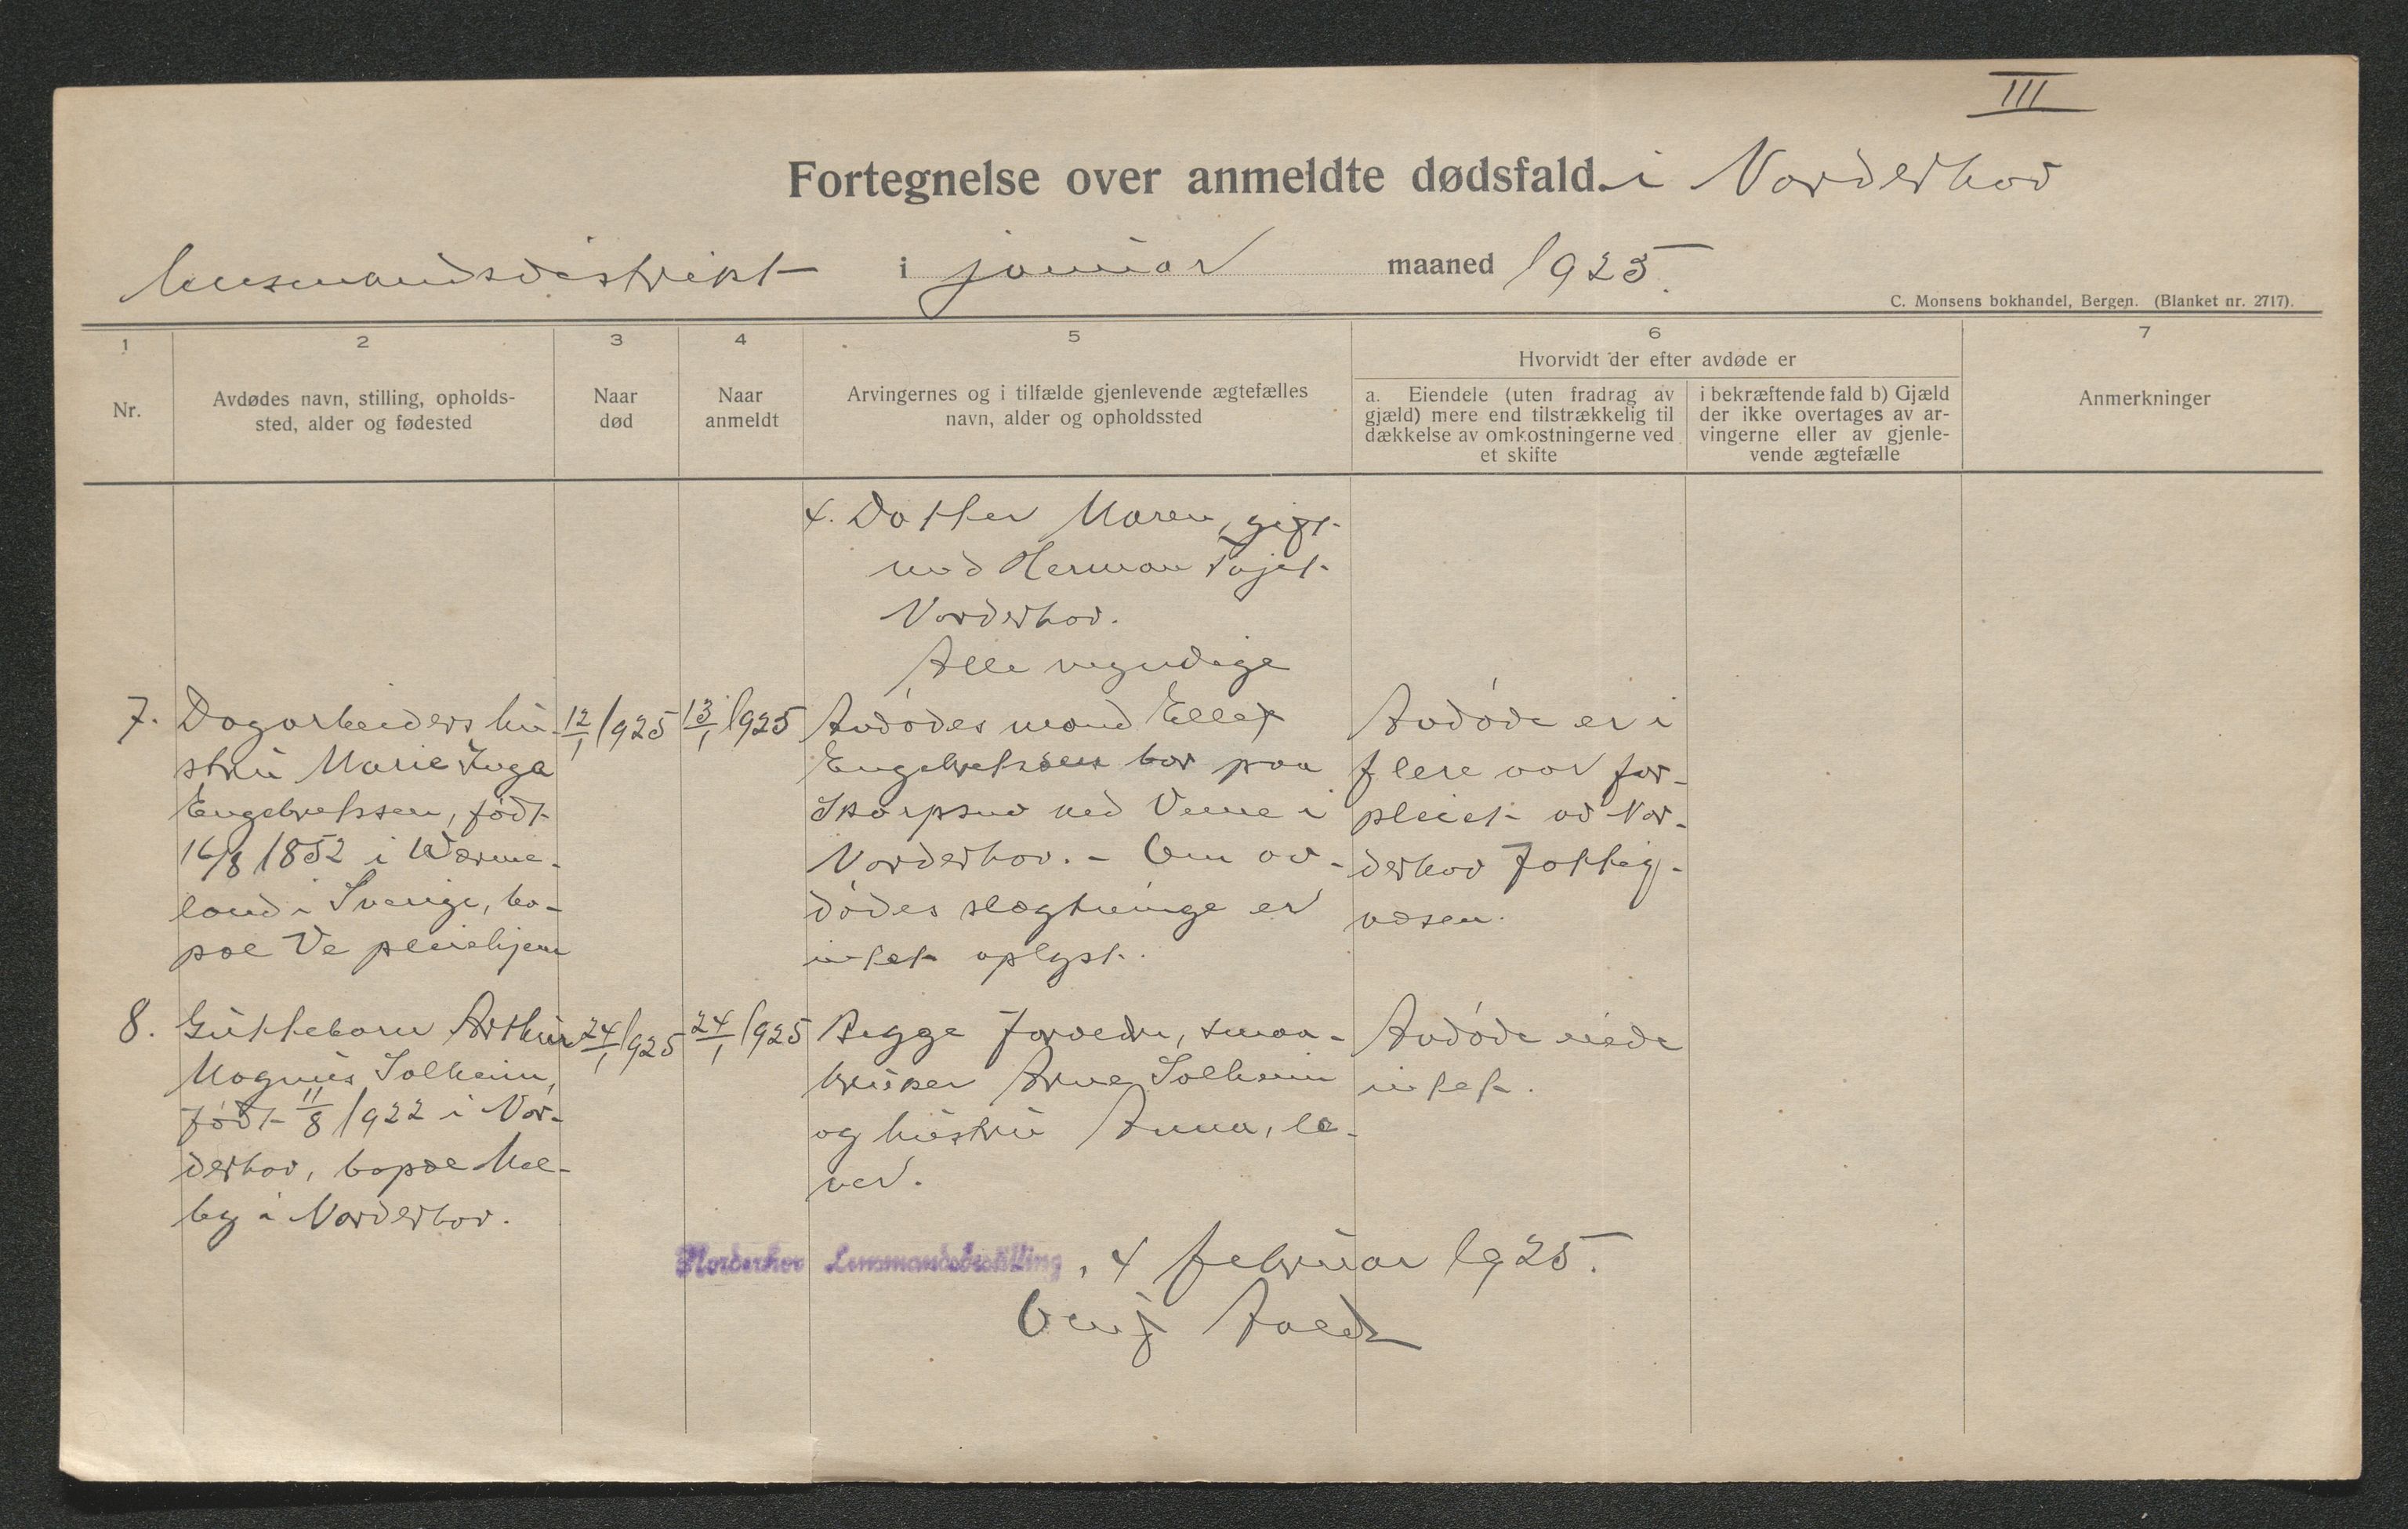 III
Fortegnelse over anmeldte dødsfald i Norderhov
lensmandsdistrikt i januar maaned 1925.
C. Monsens bokhandel, Bergen. (Blanket nr. 2717).
1
2
3
4
5
6
7
Nr.
Avdødes navn, stilling, opholds-
sted, alder og fødested
Naar
død
Naar
anmeldt
Arvingernes og i tilfælde gjenlevende ægtefælles
navn, alder og opholdssted
Hvorvidt der efter avdøde er
a. Eiendele (uten fradrag av
gjæld) mere end tilstrækkelig til
dækkelse av omkostningerne ved
et skifte
i bekræftende fald b) Gjæld
der ikke overtages av ar-
vingerne eller av gjenle-
vende ægtefælle
Anmerkninger
4. Datter Maren, gift
med Herman
Norderhov.
Alle myndige
7.
Dagarbeiders hu-
stru Marie Inga
Engebretsen, født
16/8 1852 i Wærme-
land i Sverige, bo-
pæl Ve pleiehjem
12/1 1925
13/1 1925
Avdødes mand Ellef
Engebretsen bor paa
ved Veme i
Norderhov. - Om av-
dødes slægtninge er
intet oplyst.
Avdøde er i
flere aar for-
pleiet av Nor-
derhov Fattig-
væsen.
8.
Guttebarn Arthur
Magnus Solheim,
født 11/8 1922 i Nor-
derhov, bopæl Mæ-
by i Norderhov.
24/1 1925
24/1 1925
Begge forældre, smaa-
bruker Arne Solheim
og hustru Anna, le-
ver.
Avdøde eiede
intet.
Norderhov Lensmandsbestilling, 4 februar 1925.